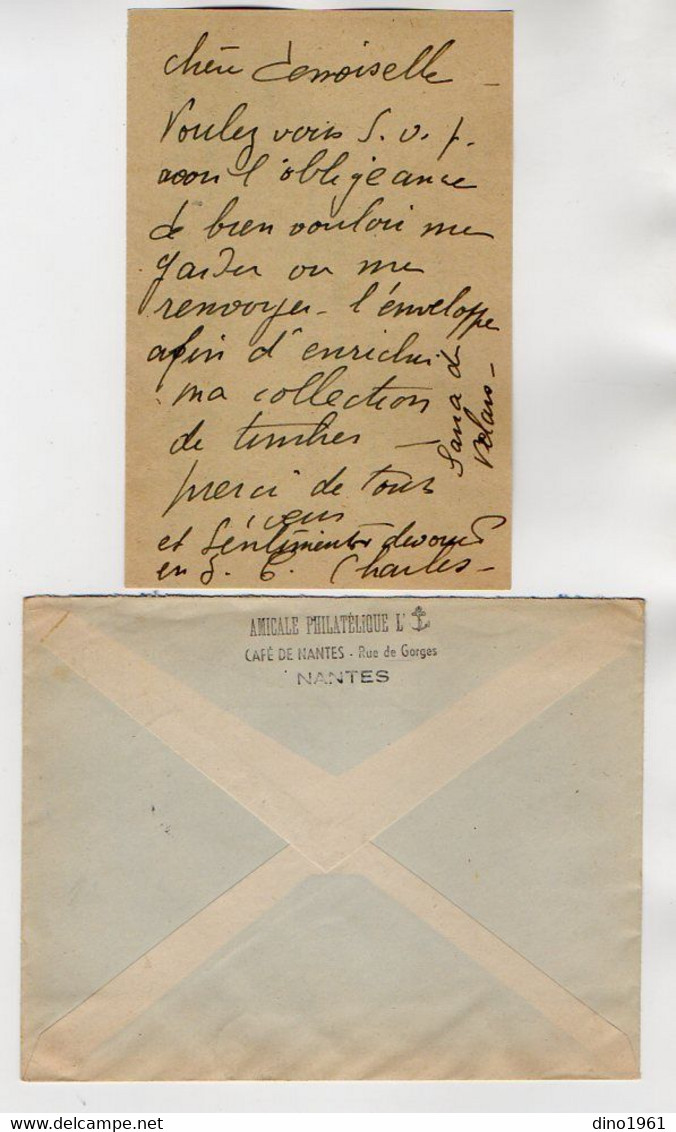 chère demoiselle -
Voulez vous S. v. p.
avoir l'obligeance
de bien vouloir me
garder ou me
renvoyer - l'enveloppe
afin d'enrichir
ma collection
de timbres -
merci de tous
vous
et sentiments devoués
en J. C. Charles -
Sana de
AMICALE PHILATÉLIQUE L'
CAFÉ DE NANTES - Rue de Gorges
NANTES
delcampe.net
dino1961